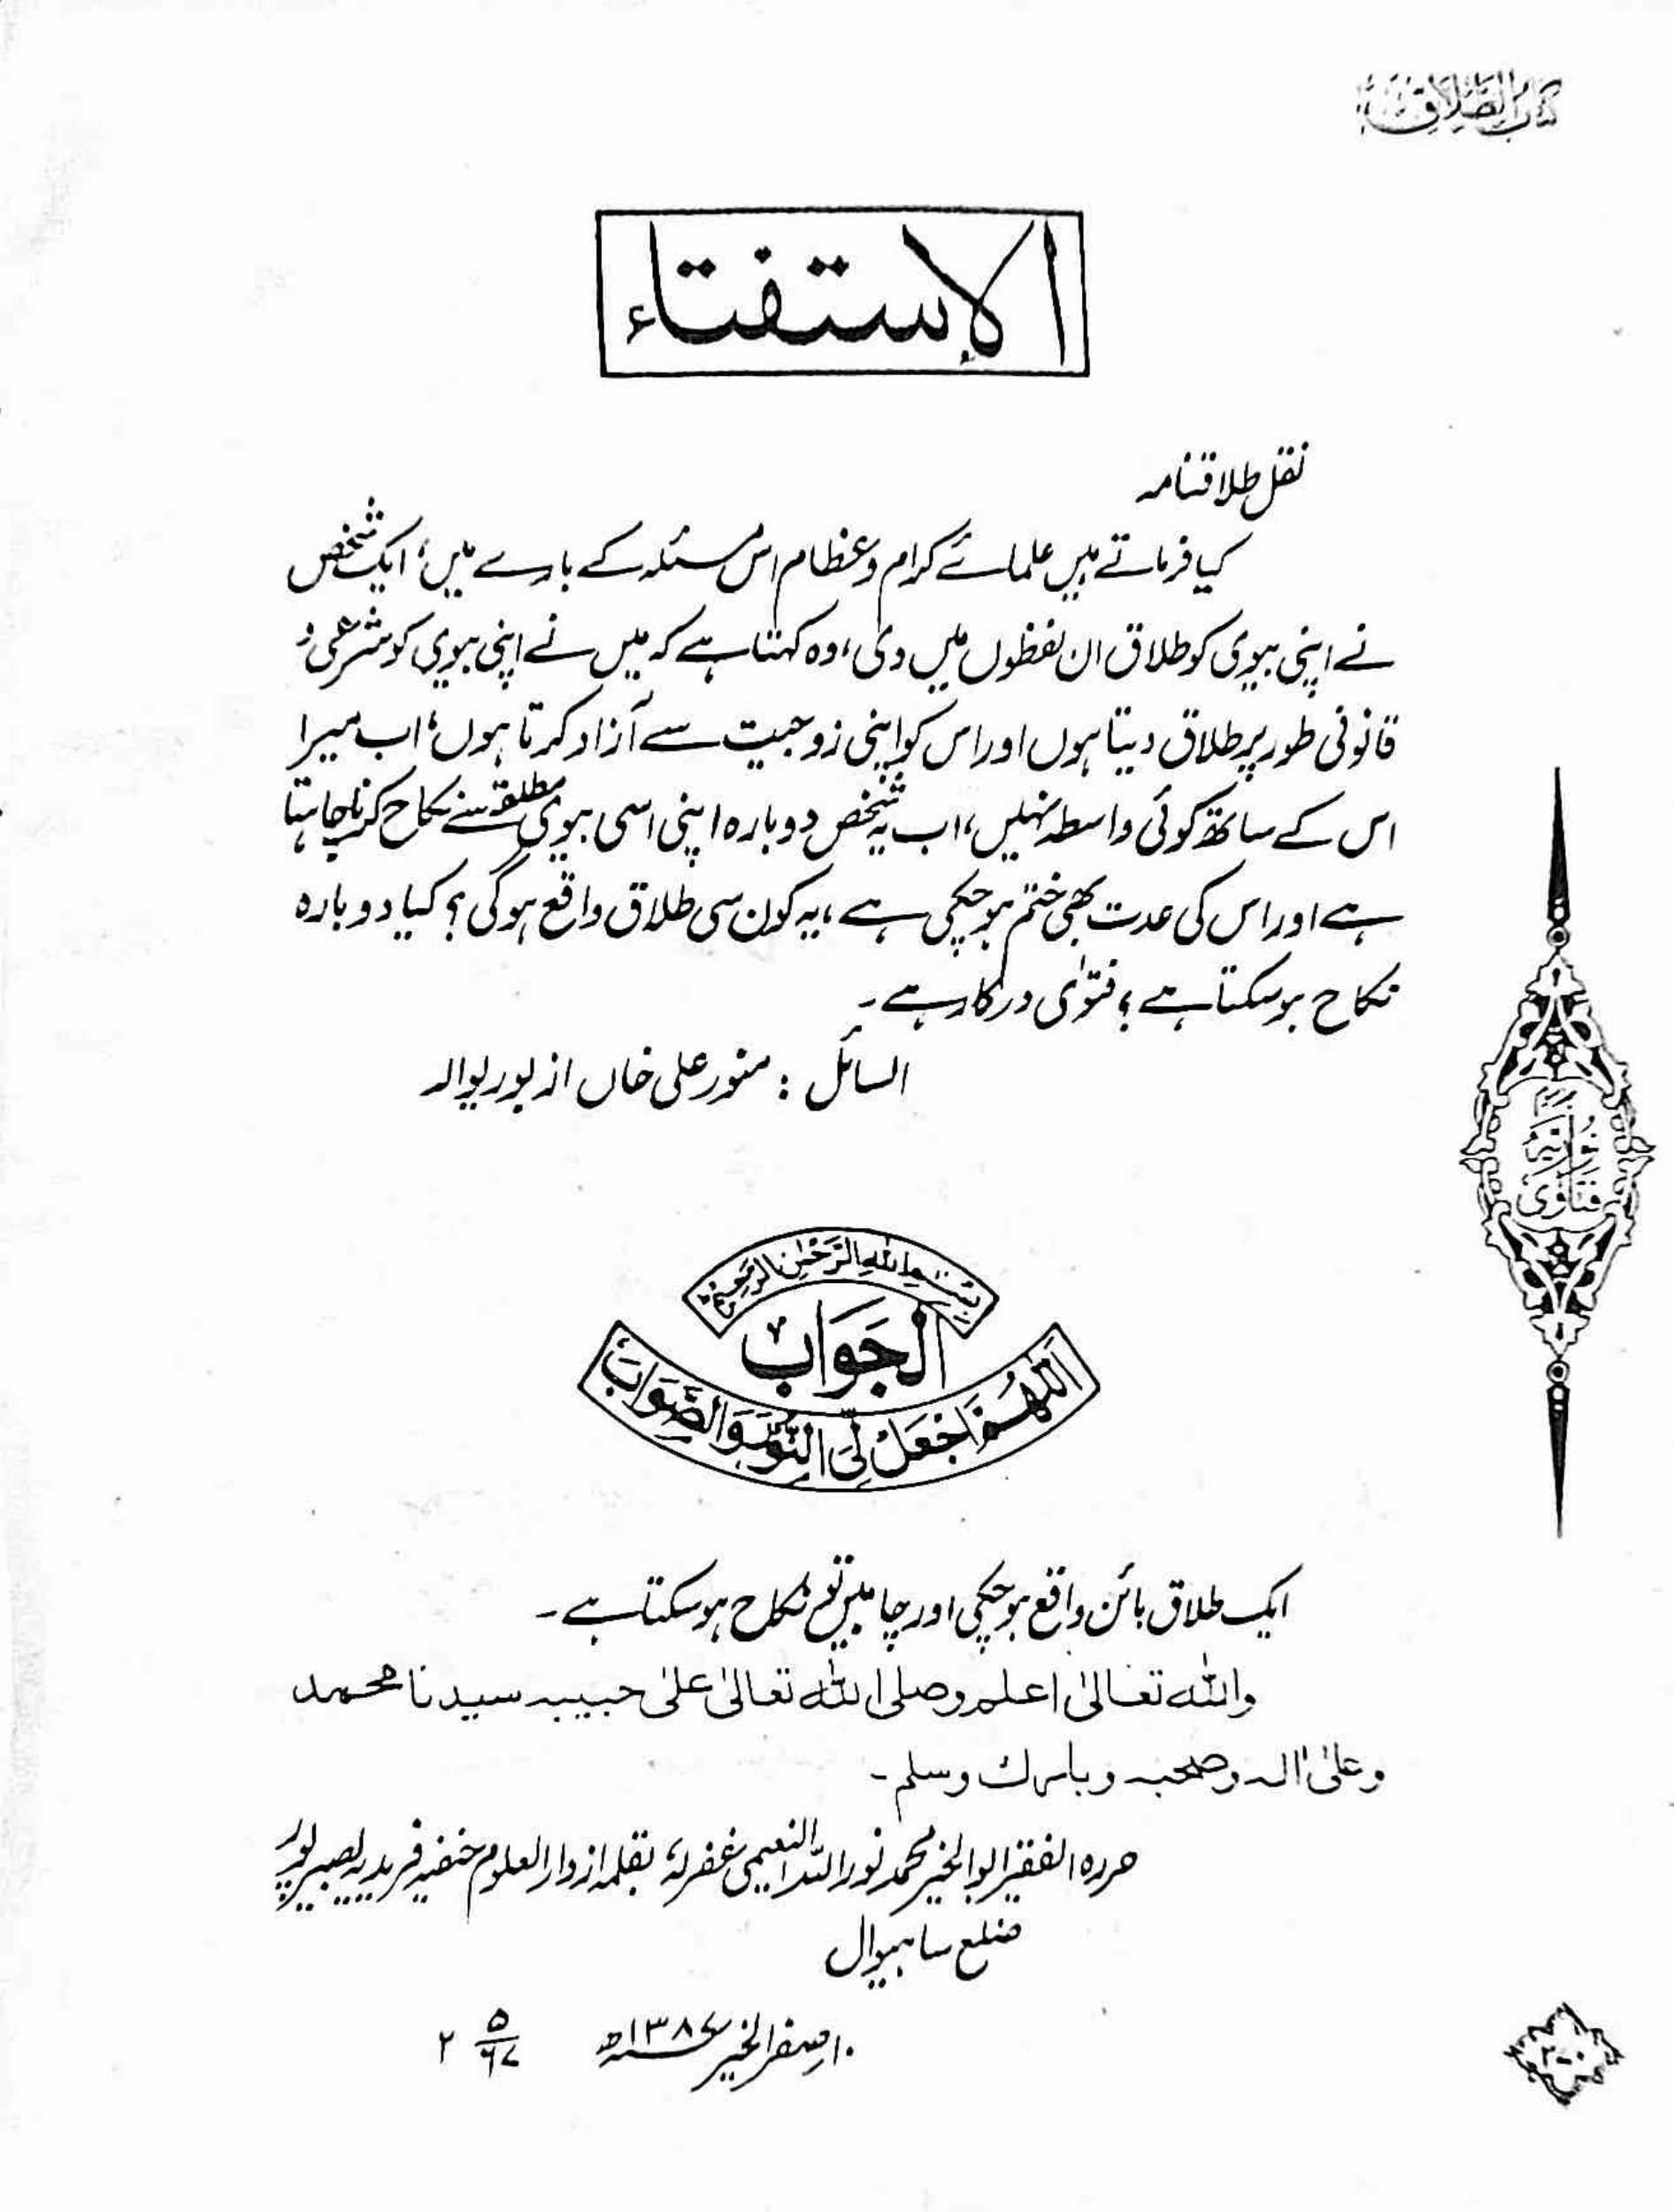 کتاب الطلاق
الاستفتاء
نقل طلاقنامہ
کیا فرماتے ہیں علمائے کرام و عظام اس مسئلہ کے بارے میں، ایک شخص
نے اپنی بیوی کو طلاق ان لفظوں میں دی، وہ کہتا ہے کہ میں نے اپنی بیوی کو شرعی و
قانونی طور پر طلاق دیتا ہوں اور اس کو اپنی زوجیت سے آزاد کرتا ہوں، اب میرا
اس کے ساتھ کوئی واسطہ نہیں، اب یہ شخص دوبارہ اپنی اسی بیوی مطلقہ سے نکاح کرنا چاہتا
ہے اور اس کی عدت بھی ختم ہو چکی ہے، یہ کون سی طلاق واقع ہوگی؟ کیا دوبارہ
نکاح ہو سکتا ہے؟ فتوٰی درکار ہے۔
السائل : منور علی خاں از بوریوالہ
فتاوی
نوریہ
بسم اللہ الرحمن الرحیم
الجواب
اللهم اجعل لی النور والصواب
ایک طلاق بائن واقع ہو چکی اور چاہیں تو نکاح ہو سکتا ہے۔
واللہ تعالیٰ اعلم وصلی اللہ تعالیٰ علیٰ حبیبہ سیدنا محمد
وعلیٰ اٰلہ وصحبہ وبارك وسلم۔
حررہ الفقیر ابوالخیر محمد نور اللہ النعیمی غفرلہ، بقلمہ از دار العلوم حنفیہ فریدیہ بصیرپور
ضلع ساہیوال
۱۰ صفر الخیر ۱۳۸۷ھ ۲ ۵/۶۷
۲۰۰